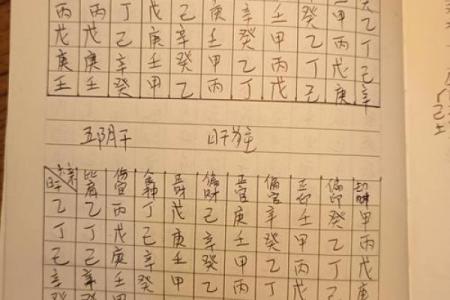 丙 丙 丁 戊 己 庚 辛 壬 癸 甲 乙
戊 戊 己 庚 辛 壬 癸 甲 乙 丙 丁
庚 庚 辛 壬 癸 甲 乙 丙 丁 戊 己
壬 壬 癸 甲 乙 丙 丁 戊 己 庚 辛
五阴干 日干
日干 比肩 伤官 食神 正财 偏财 正官 偏官 正印 偏印 劫财
乙 乙 丙 丁 戊 己 庚 辛 壬 癸 甲
丁 丁 戊 己 庚 辛 壬 癸 甲 乙 丙
己 己 庚 辛 壬 癸 甲 乙 丙 丁 戊
辛 辛 壬 癸 甲 乙 丙 丁 戊 己 庚